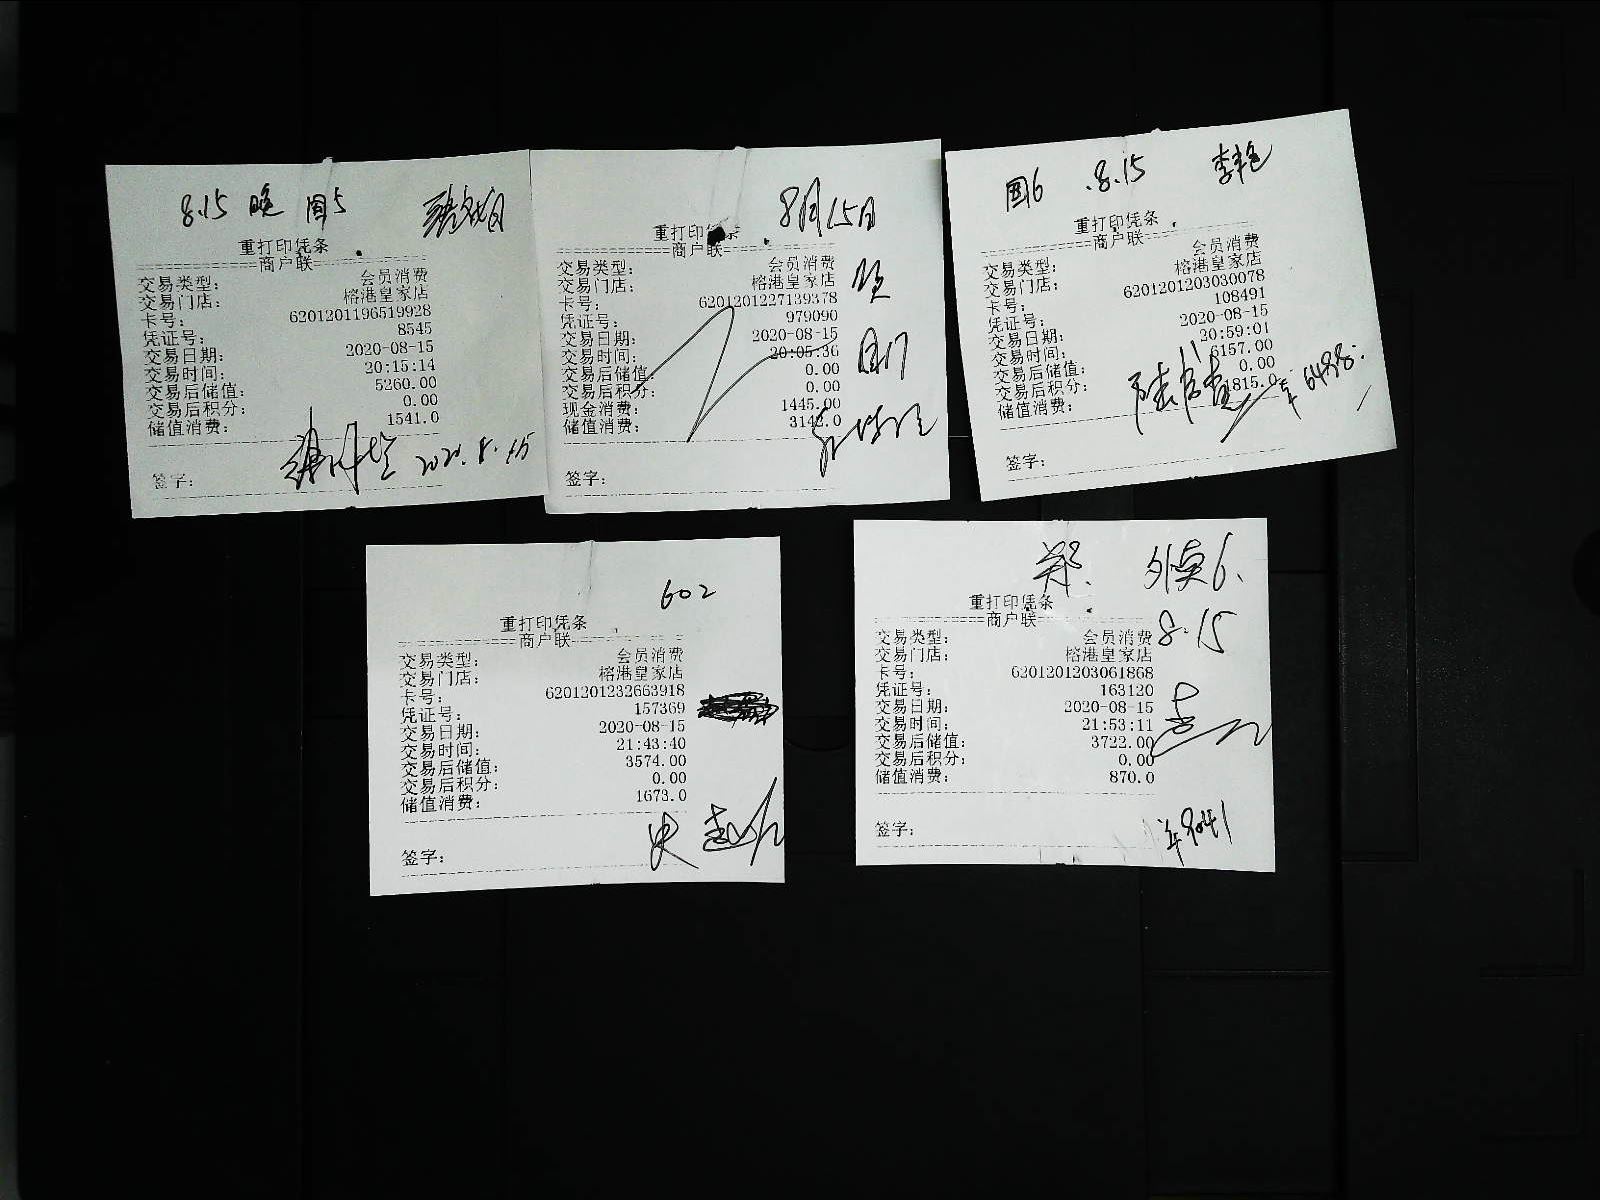 8.15 晚 国5
重打印凭条
商户联
交易类型: 会员消费
交易门店: 榕港皇家店
卡号: 6201201196519928
凭证号: 8545
交易日期: 2020-08-15
交易时间: 20:15:14
交易后储值: 5260.00
交易后积分: 0.00
储值消费: 1541.0
2020.8.15
签字:
8月15日
重打印凭条
商户联
交易类型: 会员消费
交易门店: 榕港皇家店
卡号: 6201201227139378
凭证号: 979090
交易日期: 2020-08-15
交易时间: 20:05:36
交易后储值: 0.00
交易后积分: 0.00
现金消费: 1445.00
储值消费: 3142.0
签字:
国6 .8.15 李艳
重打印凭条
商户联
交易类型: 会员消费
交易门店: 榕港皇家店
卡号: 6201201203030078
凭证号: 108491
交易日期: 2020-08-15
交易时间: 20:59:01
交易后储值: 6157.00
交易后积分: 0.00
储值消费: 1815.0
签字:
602
重打印凭条
商户联
交易类型: 会员消费
交易门店: 榕港皇家店
卡号: 6201201232663918
凭证号: 157369
交易日期: 2020-08-15
交易时间: 21:43:40
交易后储值: 3574.00
交易后积分: 0.00
储值消费: 1673.0
签字:
郑. 外卖6.
8.15
重打印凭条
商户联
交易类型: 会员消费
交易门店: 榕港皇家店
卡号: 6201201203061868
凭证号: 163120
交易日期: 2020-08-15
交易时间: 21:53:11
交易后储值: 3722.00
交易后积分: 0.00
储值消费: 870.0
签字: